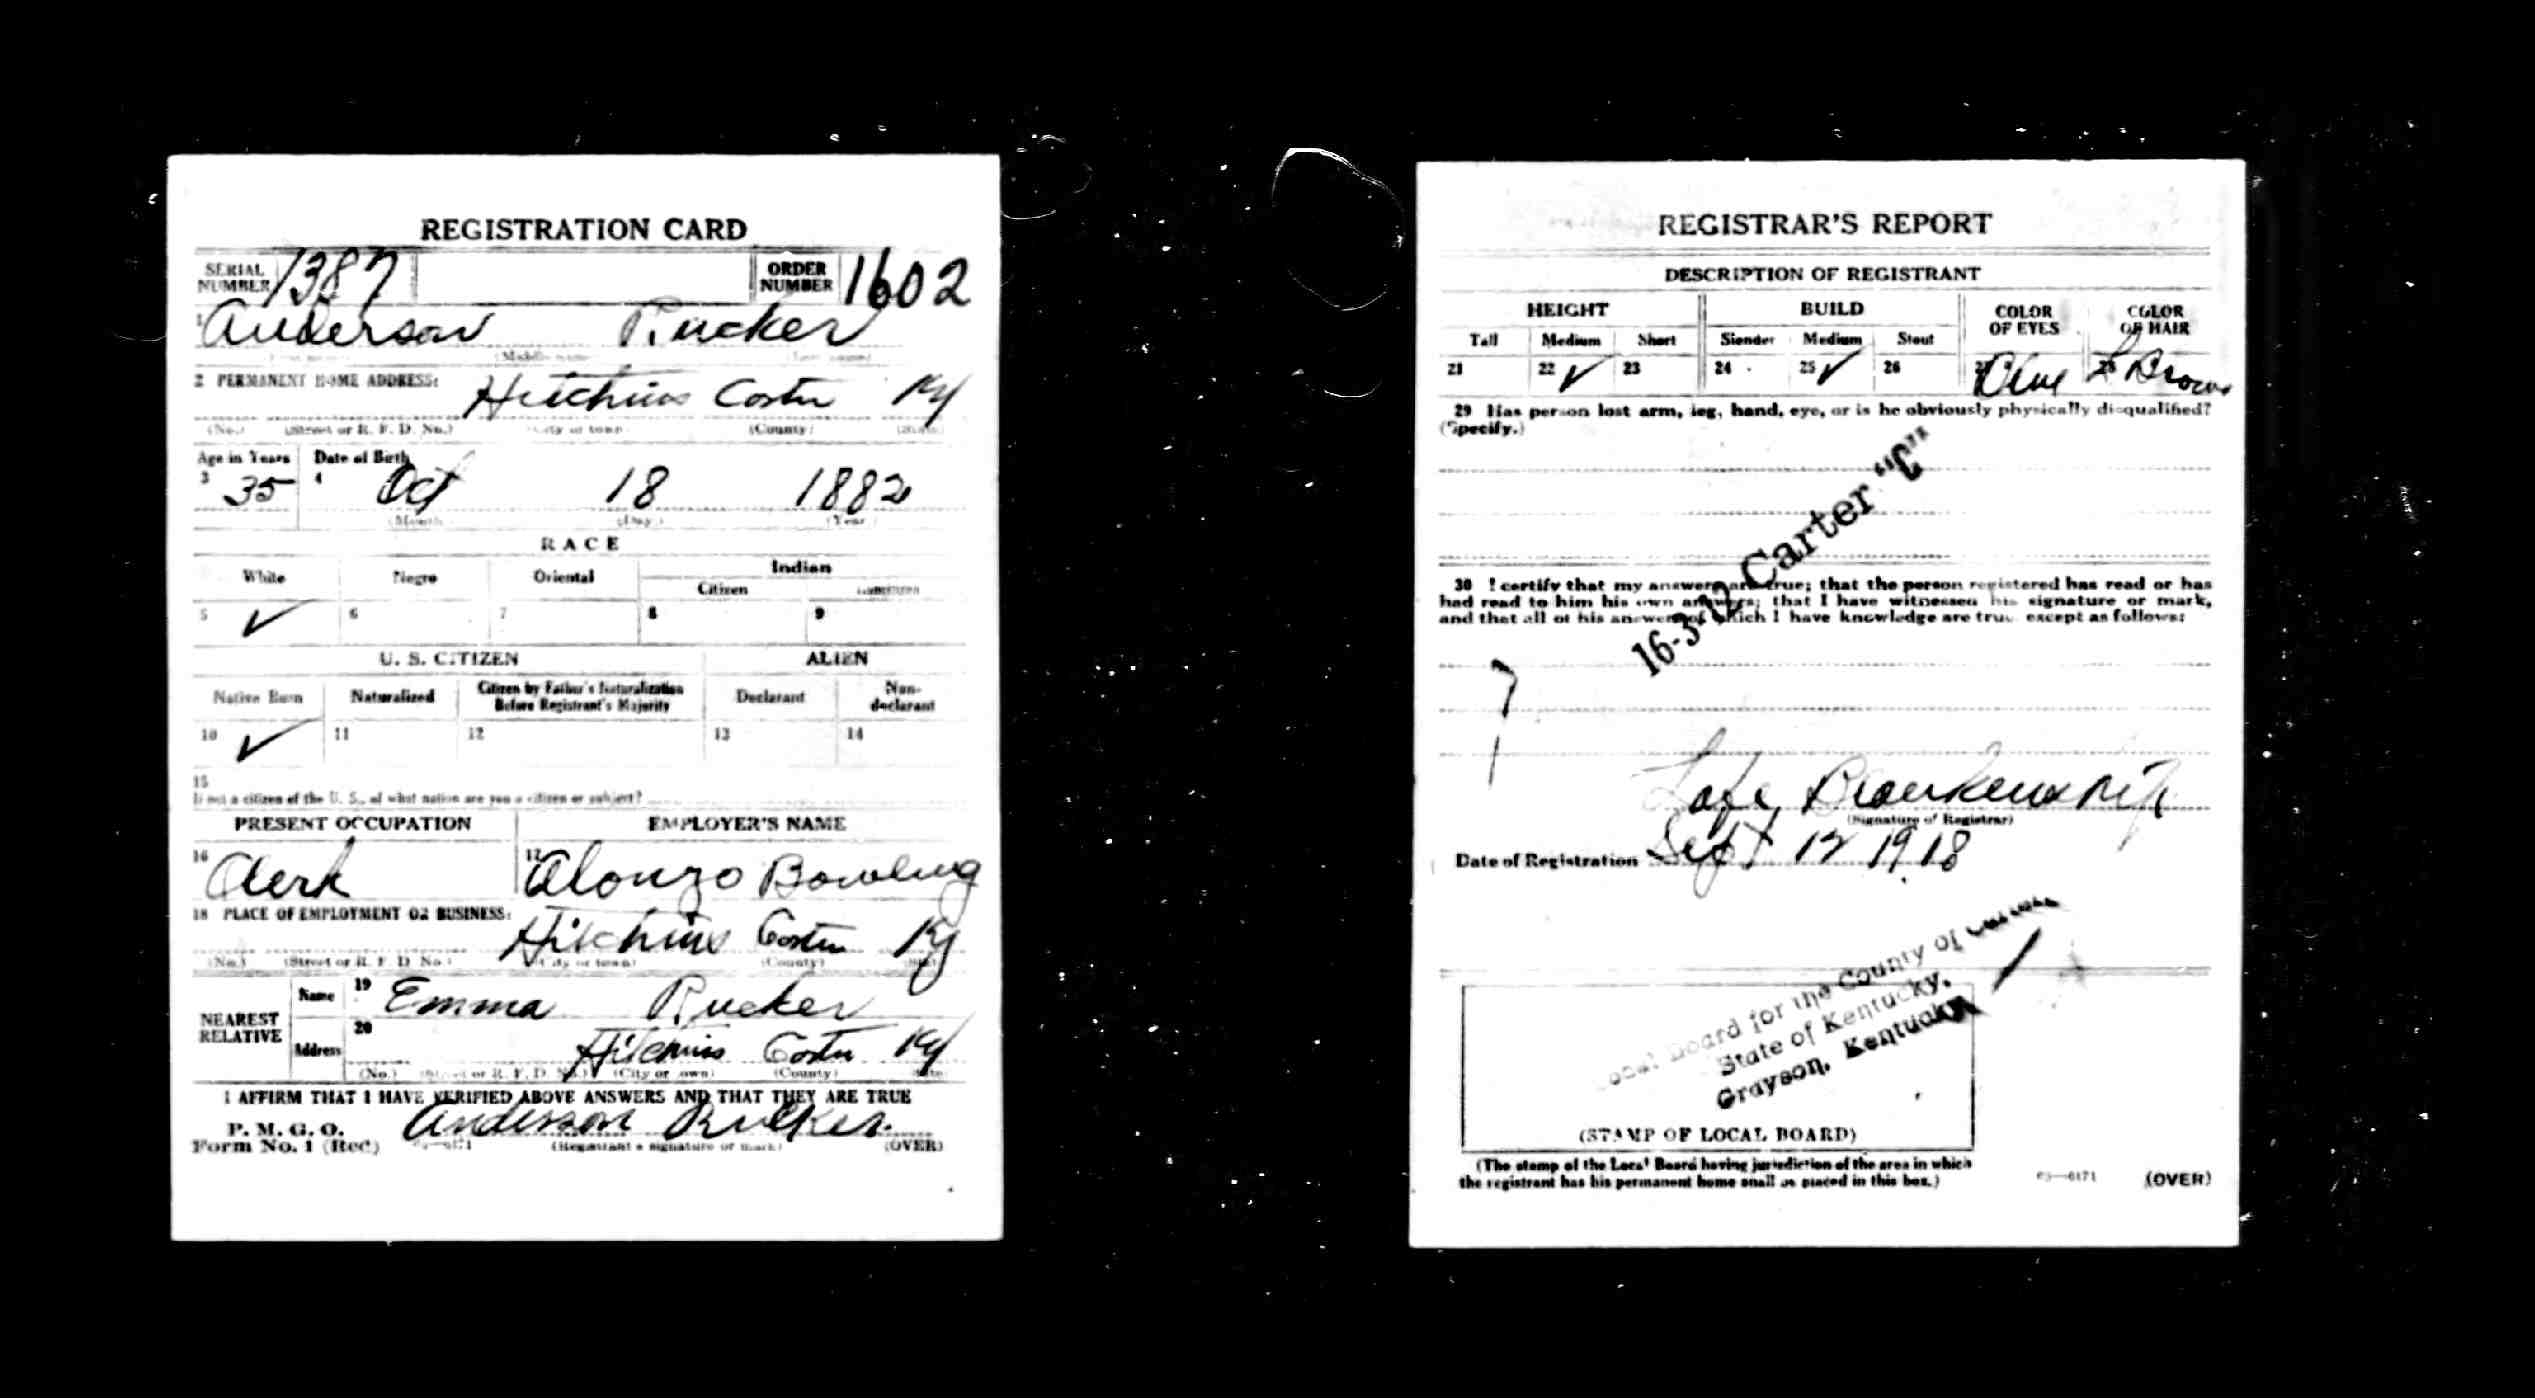 REGISTRATION CARD
SERIAL NUMBER 1387 ORDER NUMBER 1602
1 Anderson Rucker
(Middle name) (Last name)
2 PERMANENT HOME ADDRESS:
Hitchins Carter Ky
(No.) (Street or R. F. D. No.) (City or town) (County) (State)
Age in Years Date of Birth
3 35 4 Oct 18 1882
(Month) (Day) (Year)
RACE
White Negro Oriental Indian
Citizen Noncitizen
5 ✓ 6 7 8 9
U. S. CITIZEN ALIEN
Native Born Naturalized Citizen by Father's Naturalization Before Registrant's Majority Declarant Non-declarant
10 ✓ 11 12 13 14
15
If not a citizen of the U. S., of what nation are you a citizen or subject?
PRESENT OCCUPATION EMPLOYER'S NAME
16 Clerk 17 Alonzo Bowling
18 PLACE OF EMPLOYMENT OR BUSINESS:
Hitchins Carter Ky
(No.) (Street or R. F. D. No.) (City or town) (County) (State)
NEAREST RELATIVE Name 19 Emma Rucker
Address 20 Hitchins Carter Ky
(No.) (Street or R. F. D. No.) (City or town) (County) (State)
I AFFIRM THAT I HAVE VERIFIED ABOVE ANSWERS AND THAT THEY ARE TRUE
P. M. G. O.
Form No. 1 (Red) Anderson Rucker
(Registrant's signature or mark) (OVER)
REGISTRAR'S REPORT
DESCRIPTION OF REGISTRANT
HEIGHT BUILD COLOR OF EYES COLOR OF HAIR
Tall Medium Short Slender Medium Stout
21 22 ✓ 23 24 25 ✓ 26 27 Blue 28 L Brown
29 Has person lost arm, leg, hand, eye, or is he obviously physically disqualified?
(Specify.)
16-3-12 Carter "C"
30 I certify that my answers are true; that the person registered has read or has
had read to him his own answers; that I have witnessed his signature or mark,
and that all of his answers of which I have knowledge are true, except as follows:
Lafe Blankenship
(Signature of Registrar)
Date of Registration Sept 12 1918
Local Board for the County of Carter
State of Kentucky,
Grayson, Kentucky
(STAMP OF LOCAL BOARD)
(The stamp of the Local Board having jurisdiction of the area in which
the registrant has his permanent home shall be placed in this box.)
03—6171 (OVER)